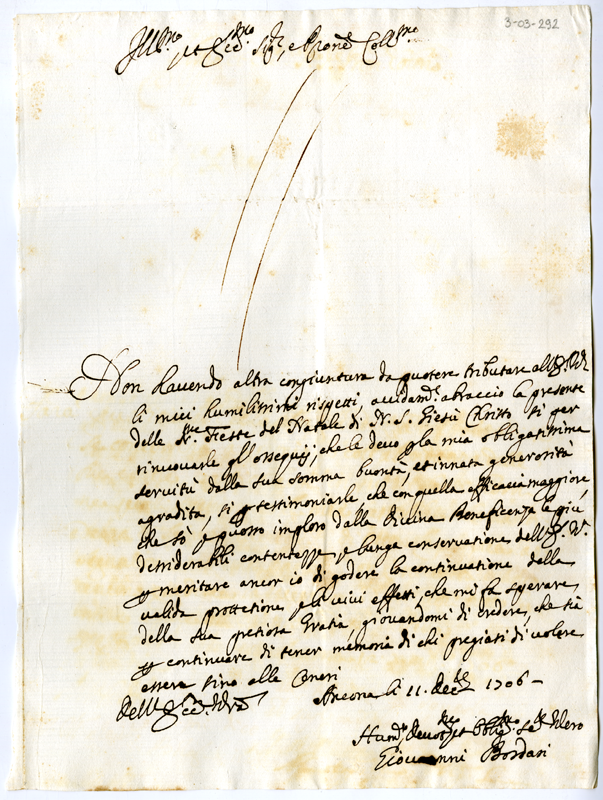 3-03-292
Ill.mo et Ecc.mo Sig.r, e Pron.e Coll.mo
Non havendo altra congiuntura da potere tributare all'E. V.
li miei humilissimi rispetti, avidam.te abraccio la presente
delle S.me Feste del Natale di N. S. Giesù Christo sì per
rinuovarle gl'ossequij, che le devo p la mia obligatissima
servitù dalla sua somma bontà, et innata generosità
agradita, sì p testimoniarle che con quella efficacia maggiore,
che sò, e posso imploro dalla Divina Beneficenza le più
desiderabili contentezze, e longa conservatione dell'E. V.
p meritare ancor io di godere la continuatione della
valida protettione, e li vivi effetti, che mi fa sperare
della sua pretiosa Gratia, giovandomi di credere, che sia
p continuare di tener memoria di chi pregiasi di volere
essere sino alle Ceneri
Dell' Ecc. Vra
Ancona li 11. Dec.bre 1706
Hum.o Devot.mo et Obblig.mo Se.re Vero
Giovanni Bordari